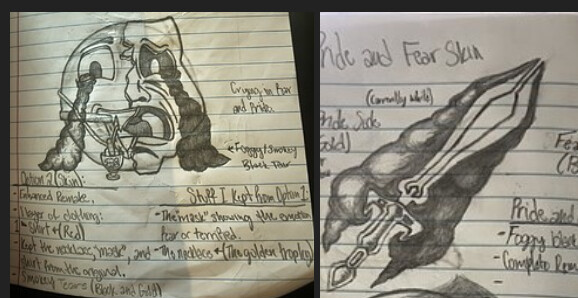 Crying in Fear
and Pride.
Foggy/Smokey
Black Tear
Option 2 (Skin):
- Enhanced Remake.
- 1 layer of clothing:
Shirt (Red)
- Kept the necklace, "mask", and
shirt from the original.
- Smokey Tears (Black and Gold)
Stuff I kept from Option 1:
- The "mask" showing the emotion
fear or terrified.
- The necklace (The golden trophy)
Pride and Fear Skin
(Currently White)
Pride Side
Gold)
Fe
Pride and
- Foggy blac
- Complete Rem